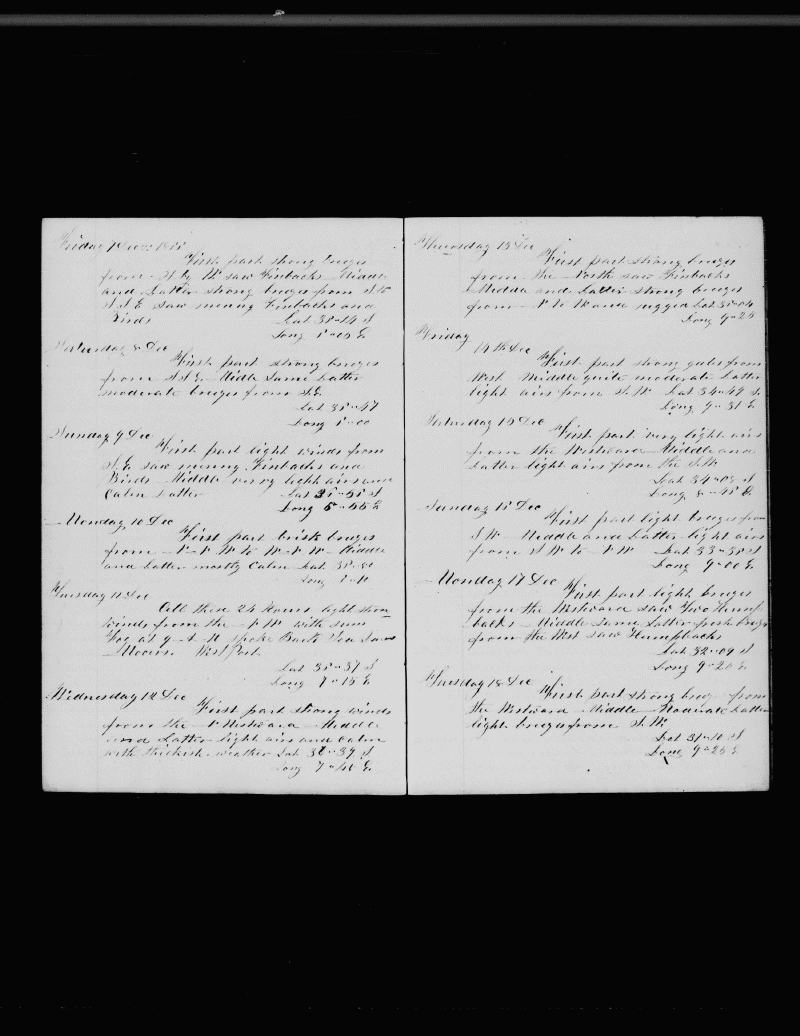 Friday 7 Dec
First part strong breezes
from W by N saw Finbacks Middle
and Latter strong breezes from
S S E saw meny Finbacks and
Birds Lat 35"14 S
Long
Saturday 8 Dec
First part strong breezes
from S S E Midle Same Latter
moderate breezes from S E
Lat 35"47
Long 1"00
Sunday 9 Dec
First part light winds from
S E saw meny Finbacks and
Birds Middle very light airs and
Calm Latter Lat S
Long 5"55 E
Monday 10 Dec
First part brisk breezes
from N N W to W N W Middle
and Latter mostly Calm Lat
Long
Tuesday 11 Dec
All these 24 Hours light
winds from the N W with sum
Fog at 9 A M spoke Bark
West Port
Lat 35"37 S
Long 7"15 E
Wednesday 12 Dec
First part strong winds
from the N Westward Middle
and Latter light airs and calm
with thickish weather Lat 39 S
Long 7"45 E
Thursday 13 Dec
First part strong breezes
from the North saw Finbacks
Midda and Latter strong breezes
from N to W and rugged Lat 35"04
Long 9"25
Friday
14th Dec
First part strong gales from
West Middle quite moderate Latter
light airs from S W Lat 34"49 S
Long 9"31 E
Saturday 15 Dec
First part very light airs
from the Westward Middle and
Latter light airs from the S W
Lat 34"05 S
Long 8"45 E
Sunday Dec
First part light breezes from
S W Middle and Latter light airs
from S W to N W Lat 33"38 S
Long 9"00 E
Monday 17 Dec
First part light breezes
from the Westward saw Two Hump
backs Middle Same Latter fresh breezes
from the West saw Humpbacks
Lat 32"09 S
Long 9"20 E
Tuesday 18 Dec
First part strong breezes from
the Westward Middle Moderate Latter
light breezes from S W
Lat 31"10 S
Long 9"25 E